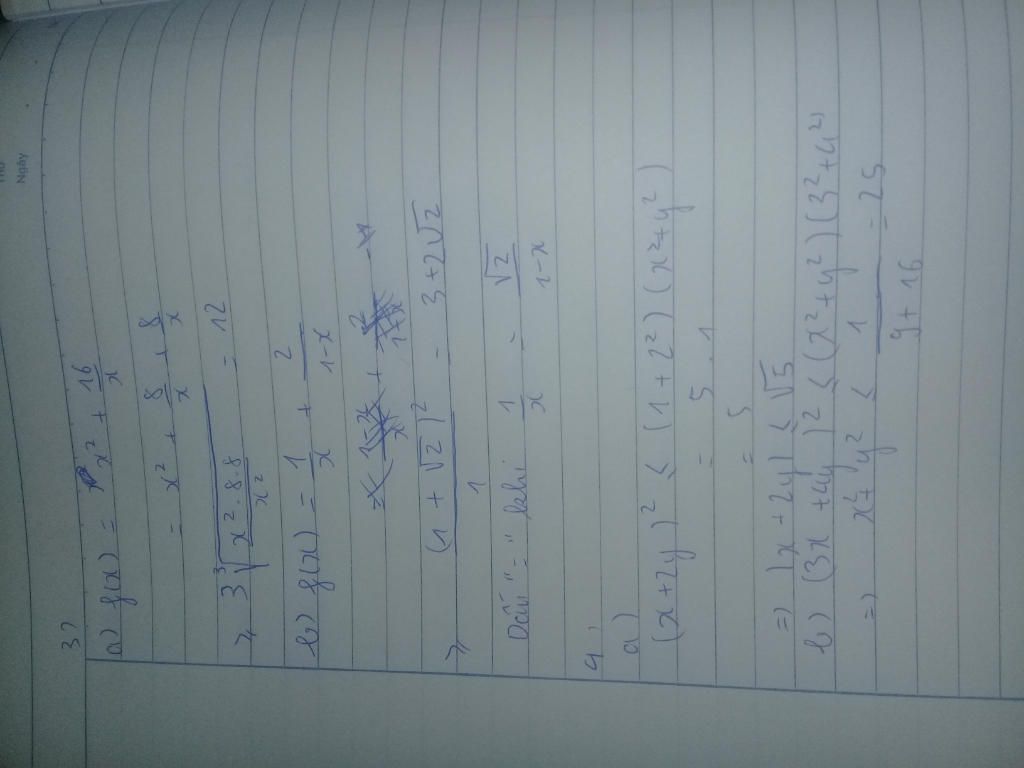 Thứ
Ngày
3)
a) f(x) = x² + 16/x
= x² + 8/x + 8/x
⩾ 3∛(x²·8·8/x²) = 12
b) f(x) = 1/x + 2/(1-x)
⩾ (1 + √2)²/1 = 3 + 2√2
Dấu "=" khi 1/x = √2/(1-x)
4,
a)
(x+2y)² ≤ (1 + 2²)(x²+y²)
= 5 . 1
= 5
=) |x + 2y| ≤ √5
b) (3x + 4y)² ≤ (x²+y²)(3²+4²)
=) x²+y² ≤ 1/(9+16) = 25